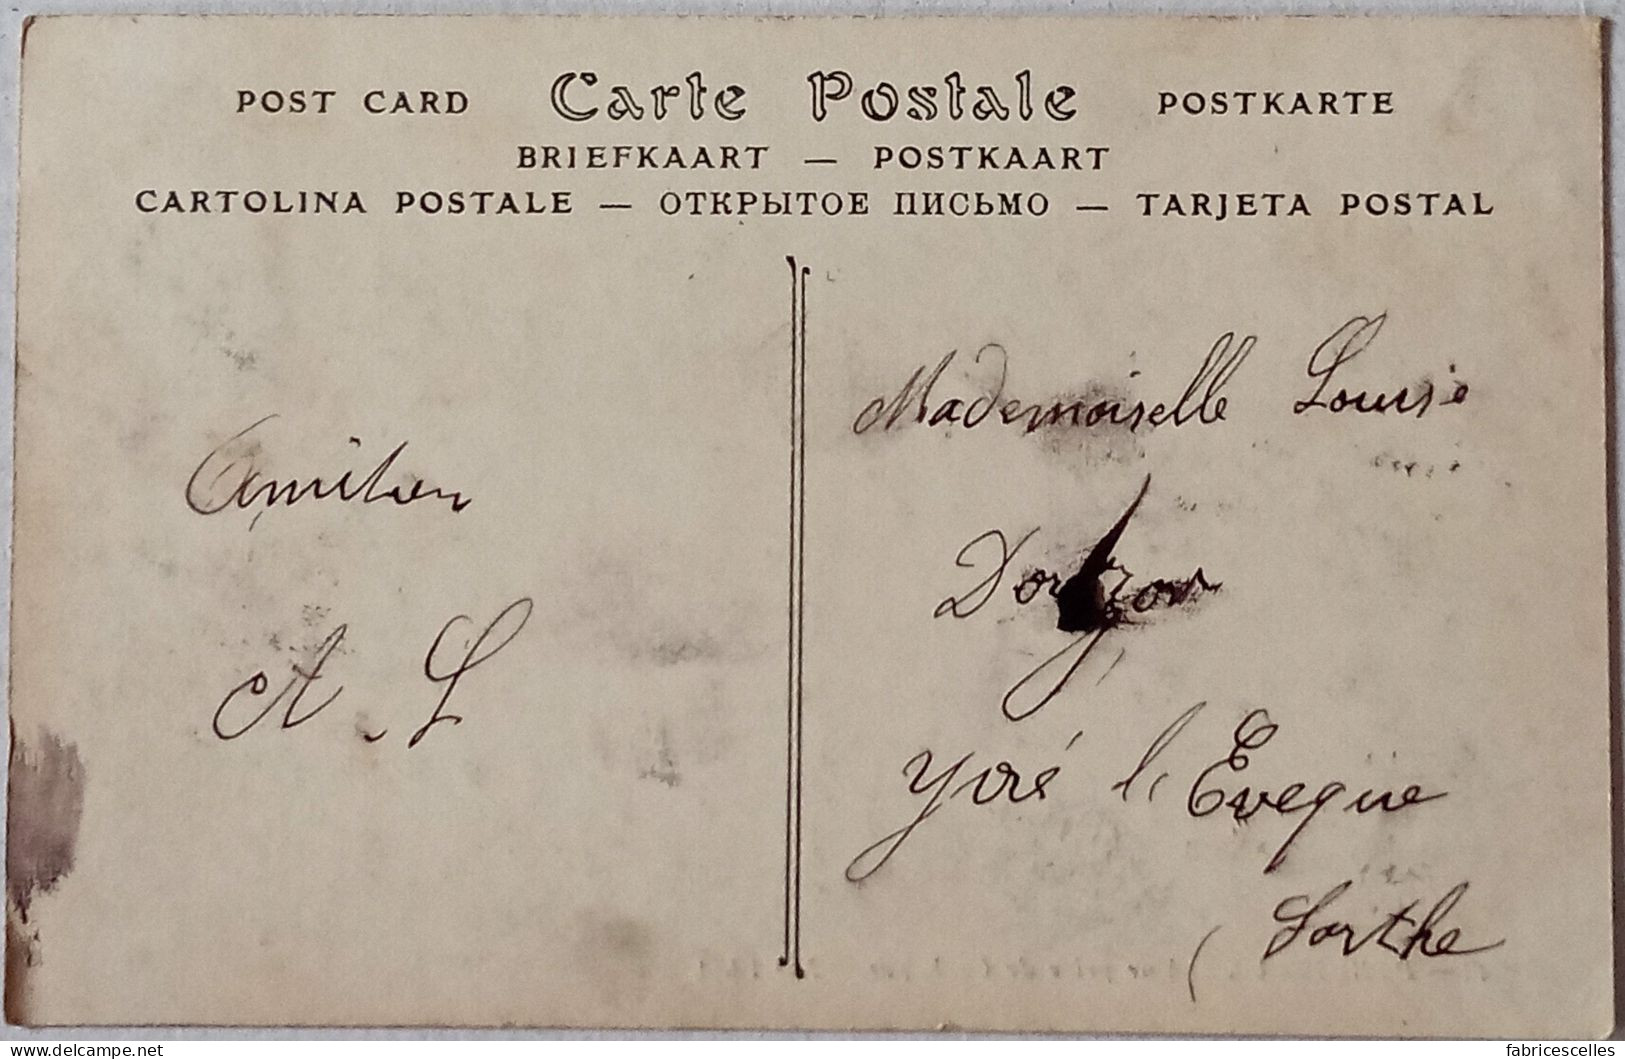 POST CARD Carte Postale POSTKARTE
BRIEFKAART — POSTKAART
CARTOLINA POSTALE — ОТКРЫТОЕ ПИСЬМО — TARJETA POSTAL
Mademoiselle Louise
Yvré l'Eveque
Sarthe
Amitien
A. L
delcampe.net
fabricescelles